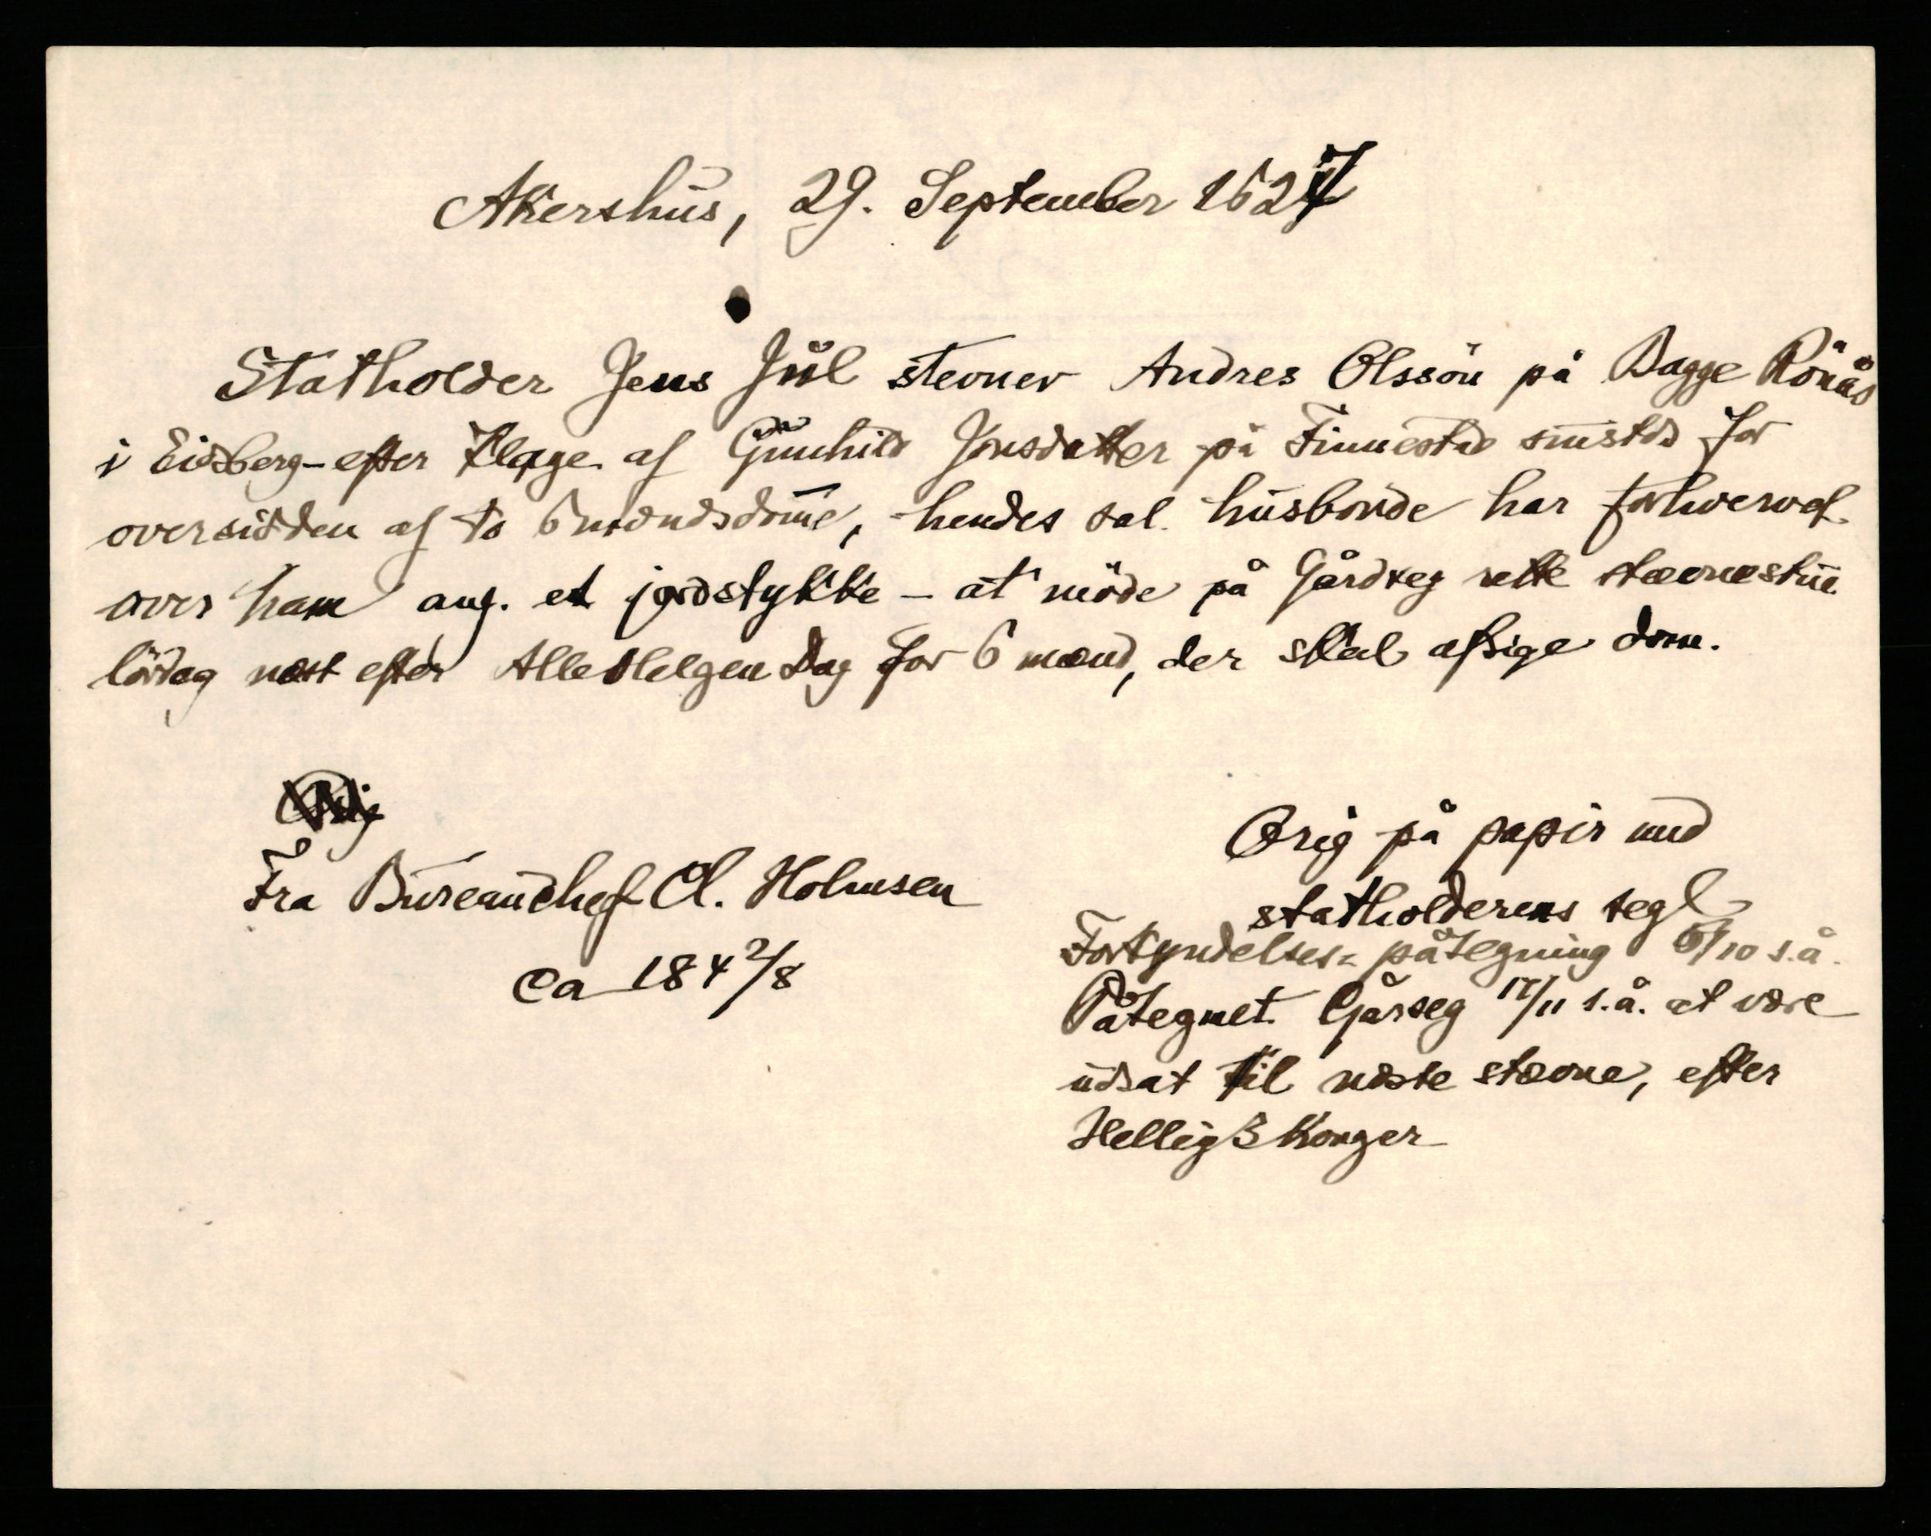 Akershus, 29. September 1627
Statholder Jens Juel stevner Andres Olssön på Bagge Rönås
i Eidsberg - efter klage af Gunhild Jonsdatter på Finnestad smstds for
oversidden af to 6mændsdomme, hendes sal. husbonde har forhvervet
over ham ang. et jordstykke - at möde på Gårdseg rette stævnestue
lördag næst efter Alle Helgen Dag for 6 mænd, der skal afsige dom.
Orig på papir med
statholderens segl
Fra Bureauchef Cl. Holmsen
ca 184 2/8
Forkyndelses- påtegning 6/10 s.å.
Påtegnet Gårseg 17/11 s.å. at være
udsat til næste stævne, efter
Hellig 3 Konger